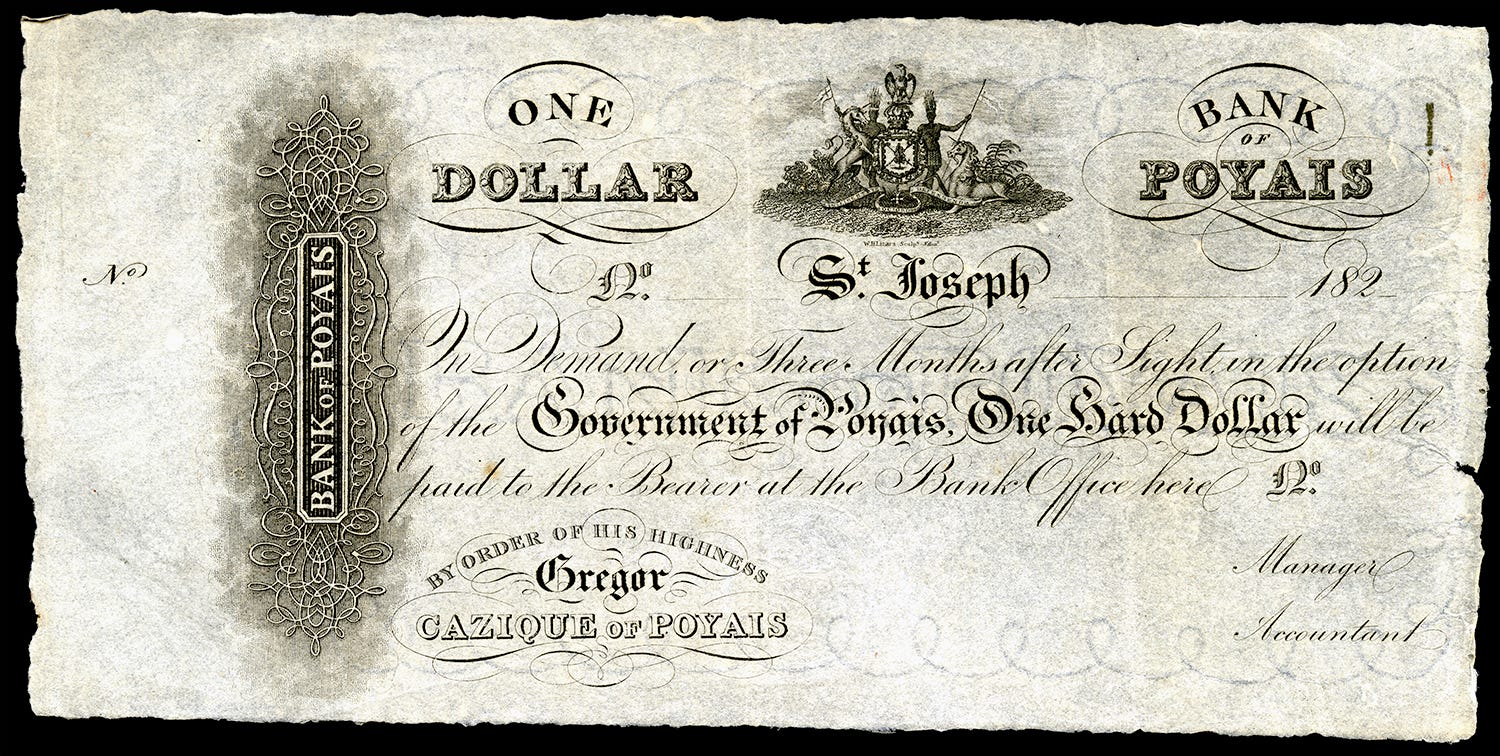 ONE
DOLLAR
BANK
OF
POYAIS
W.H.Lizars Sculpt. Edinr.
No.
No. St. Joseph 182
BANK OF POYAIS
On Demand, or Three Months after Sight, in the option
of the Government of Poyais, One Hard Dollar will be
paid to the Bearer at the Bank Office here No.
BY ORDER OF HIS HIGHNESS
Gregor
CAZIQUE OF POYAIS
Manager
Accountant